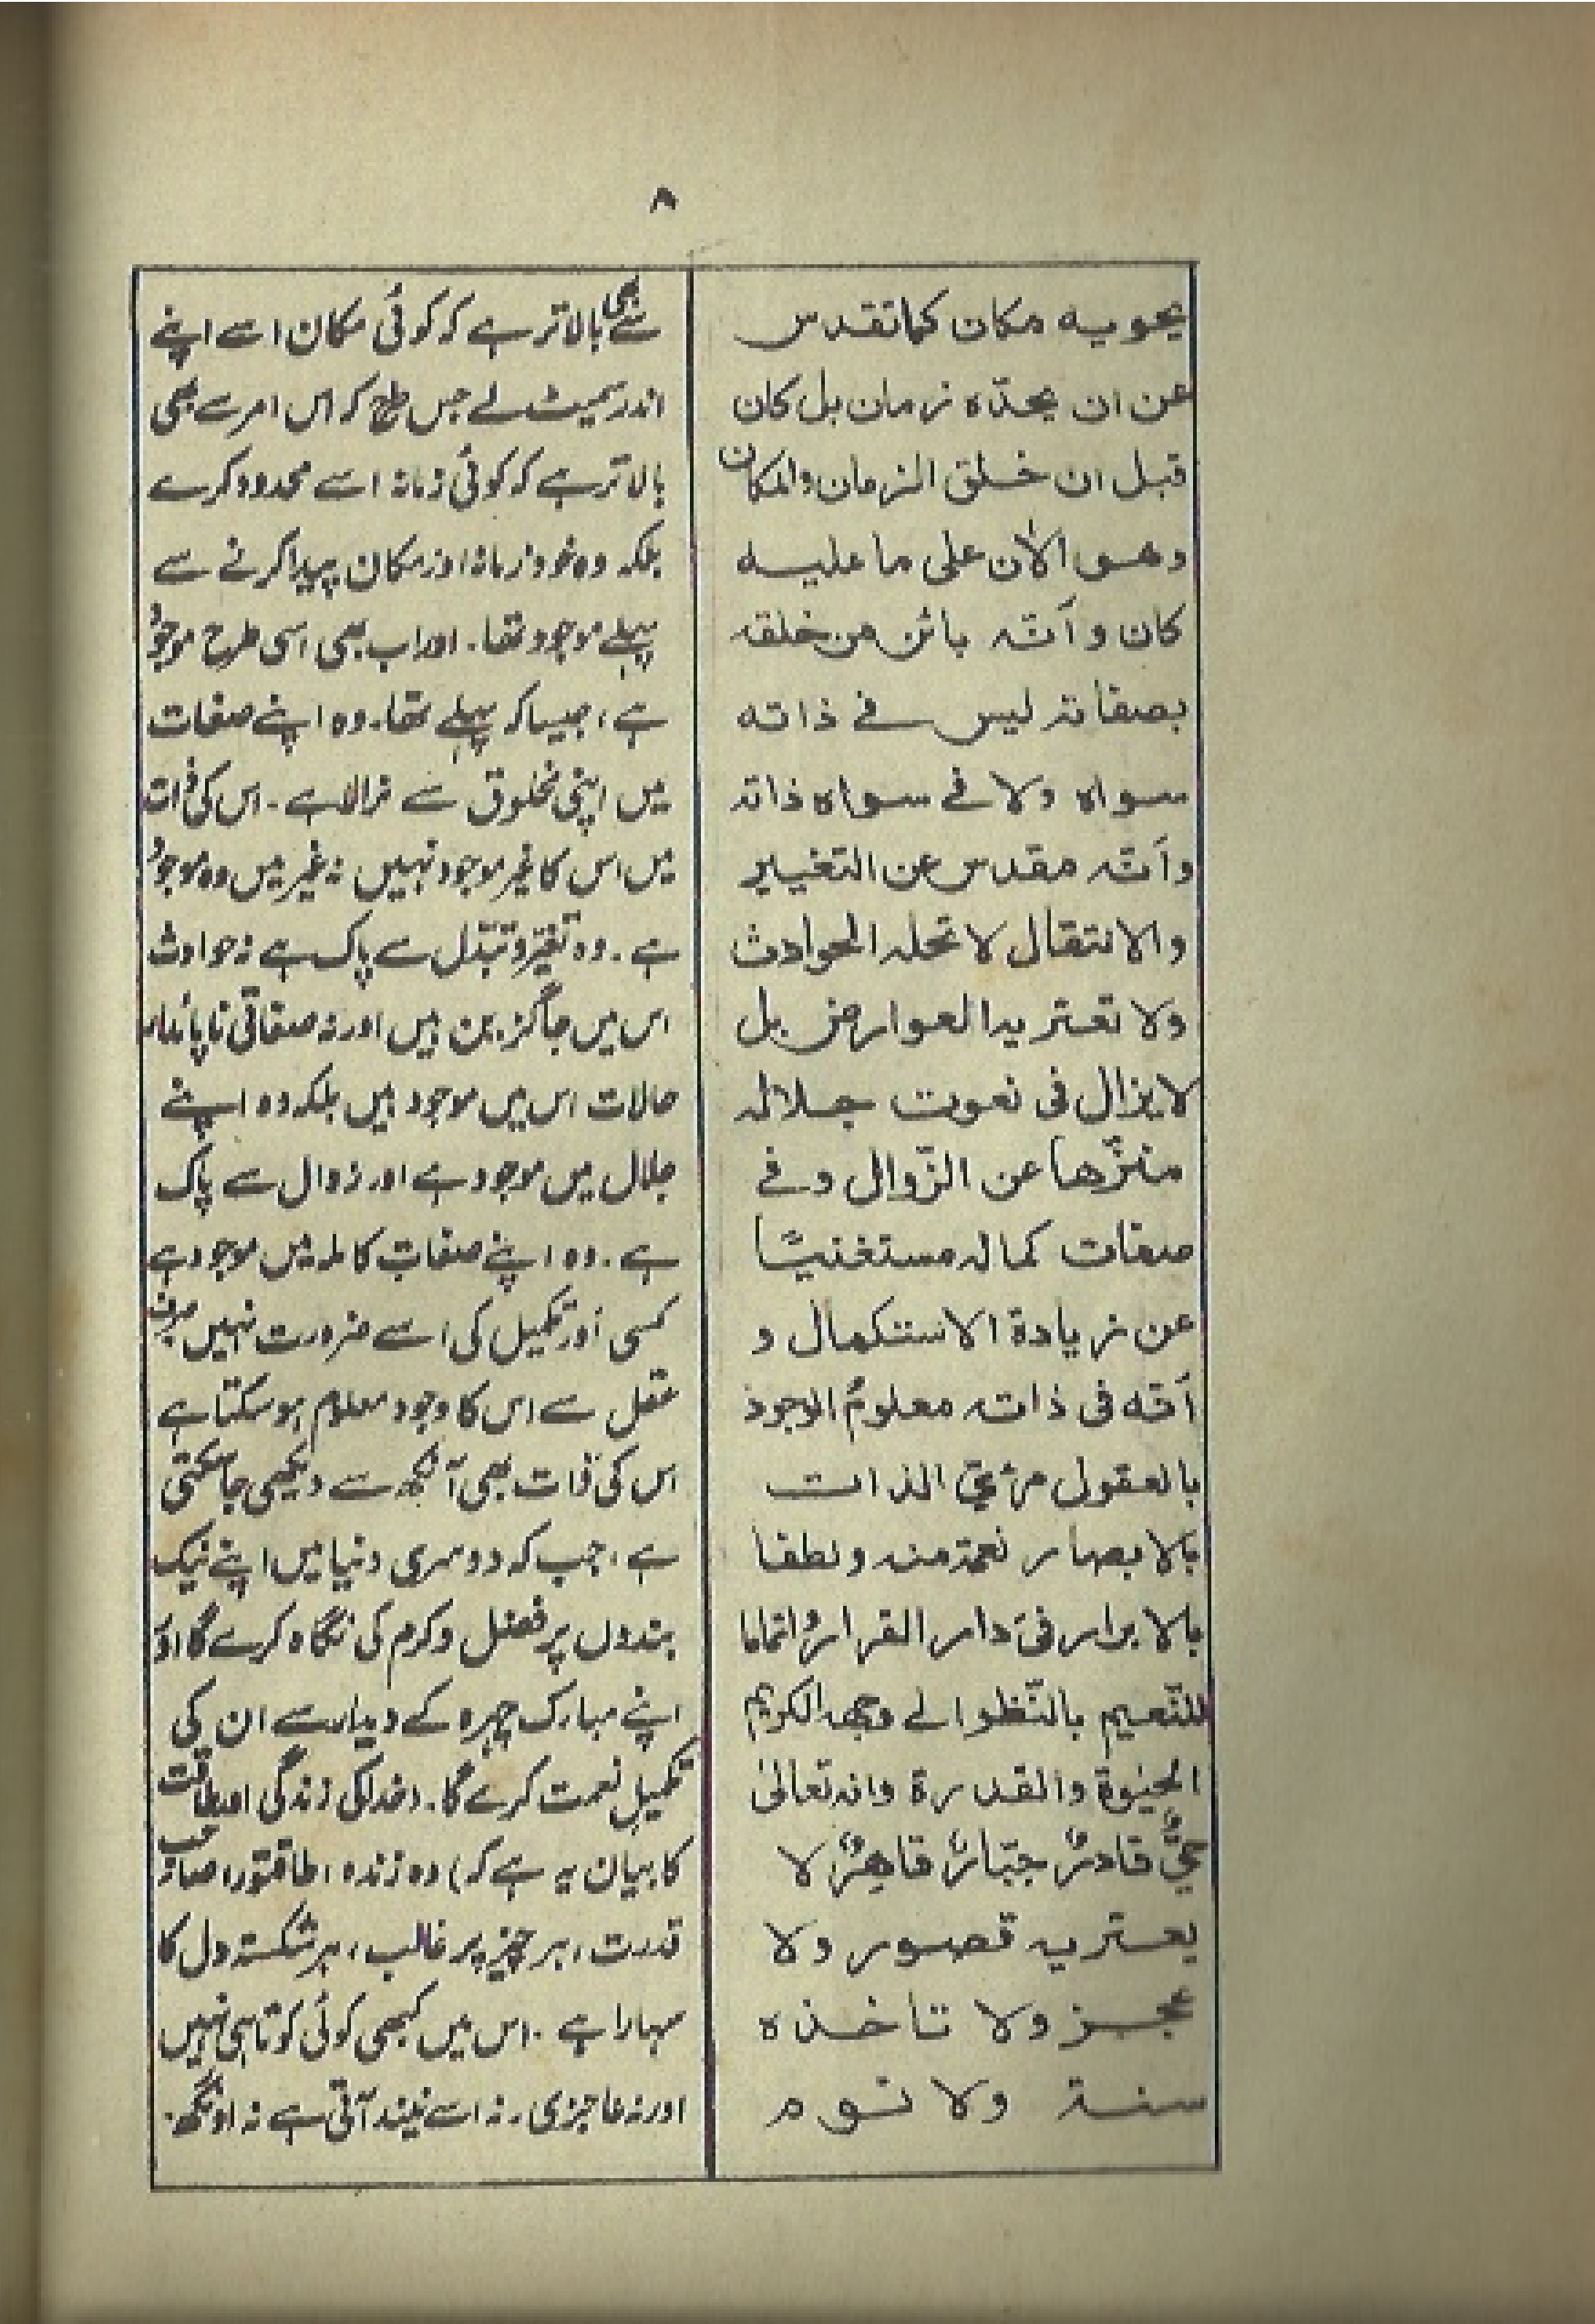 ۸
يحويه مكان كما تقدس
عن ان يحدّه زمان بل كان
قبل ان خلق الزمان والمكان
وهو الاٰن على ما عليه
كان و اَنّه بائن من خلقه
بصفاته ليس فے ذاته
سواه ولا فے سواه ذاته
واَنّه مقدس عن التغيير
والانتقال لا تحله الحوادث
ولا تعتريه العوارض بل
لا يزال فى نعوت جلاله
منزّها عن الزّوال وفے
صفات كماله مستغنيًا
عن زيادة الاستكمال و
اَنّه فى ذاته معلومُ الوجود
بالعقول مرئيّ الذات
بالابصار نعمة منه ولطفا
بالابرار فى دار القرار واتماما
للنّعيم بالنّظر الے وجهه الكريم
الحيٰوة والقدرة وانه تعالىٰ
حيٌّ قادرٌ جبّارٌ قاهرٌ لا
يعتريه قصور ولا
عجز ولا تاخذه
سنة ولا نوم
سے بھی بالاتر ہے کہ کوئی مکان اسے اپنے
اندر سمیٹ لے جس طرح کہ اس امر سے بھی
بالاتر ہے کہ کوئی زمانہ اسے محدود کرے
بلکہ وہ خود زمانہ اور مکان پیدا کرنے سے
پہلے موجود تھا۔ اور اب بھی اسی طرح موجود
ہے، جیسا کہ پہلے تھا۔ وہ اپنے صفات
میں اپنی مخلوق سے نرالا ہے۔ اس کی ذات
میں اس کا غیر موجود نہیں نہ غیر میں وہ موجود
ہے۔ وہ تغیّر و تبدّل سے پاک ہے نہ حوادث
اس میں جاگزین ہیں اور نہ صفاتی ناپائدار
حالات اس میں موجود ہیں بلکہ وہ اپنے
جلال میں موجود ہے اور زوال سے پاک
ہے۔ وہ اپنے صفاتِ کاملہ میں موجود ہے
کسی اَور تکمیل کی اسے ضرورت نہیں صرف
عقل سے اس کا وجود معلوم ہو سکتا ہے
اس کی ذات بھی آنکھ سے دیکھی جا سکتی
ہے، جب کہ دوسری دنیا میں اپنے نیک
بندوں پر فضل و کرم کی نگاہ کرے گا اور
اپنے مبارک چہرہ کے دیدار سے ان کی
تکمیلِ نعمت کرے گا۔ (خدا کی زندگی اور طاقت
کا بیان یہ ہے کہ) وہ زندہ، طاقتور، صاحب
قدرت، ہر چیز پر غالب، ہر شکستہ دل کا
سہارا ہے۔ اس میں کبھی کوئی کوتاہی نہیں
اور نہ عاجزی، نہ اسے نیند آتی ہے نہ اونگھ۔